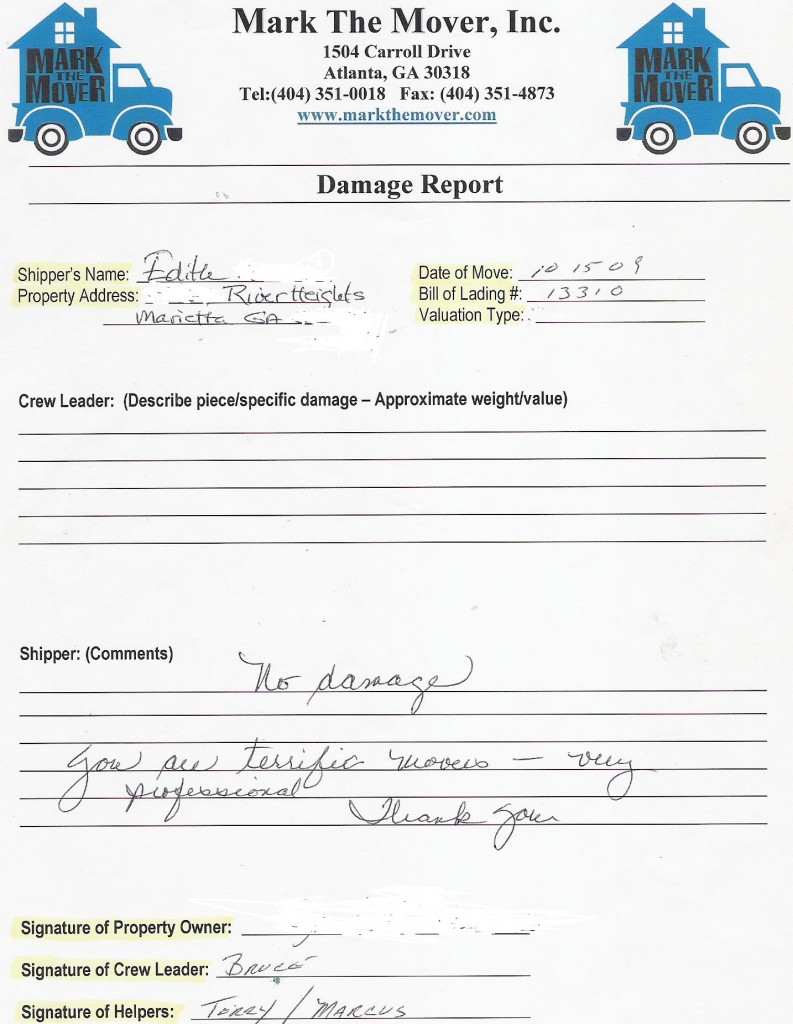 MARK THE MOVER
Mark The Mover, Inc.
MARK THE MOVER
1504 Carroll Drive
Atlanta, GA 30318
Tel:(404) 351-0018 Fax: (404) 351-4873
www.markthemover.com
Damage Report
Shipper's Name: Edith
Date of Move: 10 15 09
Property Address: River Heights
Bill of Lading #: 13310
Marietta GA
Valuation Type:
Crew Leader: (Describe piece/specific damage – Approximate weight/value)
Shipper: (Comments)
No damage
You are terrific movers — very
professional
Thank you
Signature of Property Owner:
Signature of Crew Leader: BRUCE
Signature of Helpers: TERRY / MARCUS